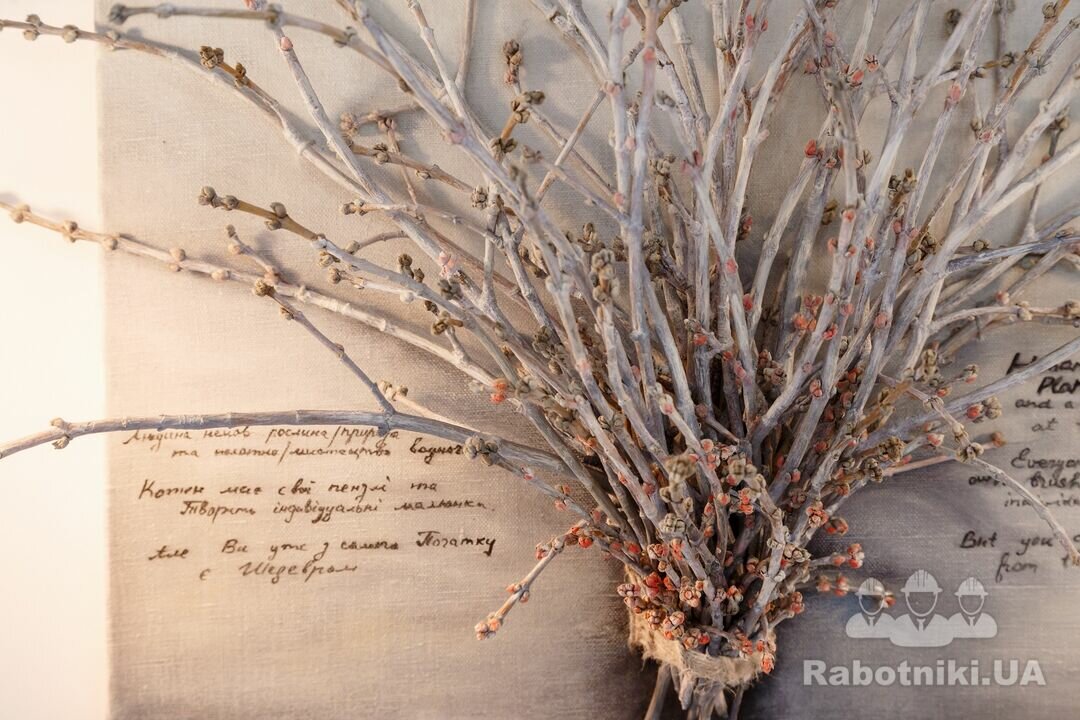 Людина немов рослина/природа
та полотно/мистецтво водночас
Кожен має свої пензлі та
Творить індивідуальні малюнки.
Але Ви уже з самого Початку
є Шедевром
Human
Plan
and a
at
Everyone
own brush
individ
But you
from
Rabotniki.UA